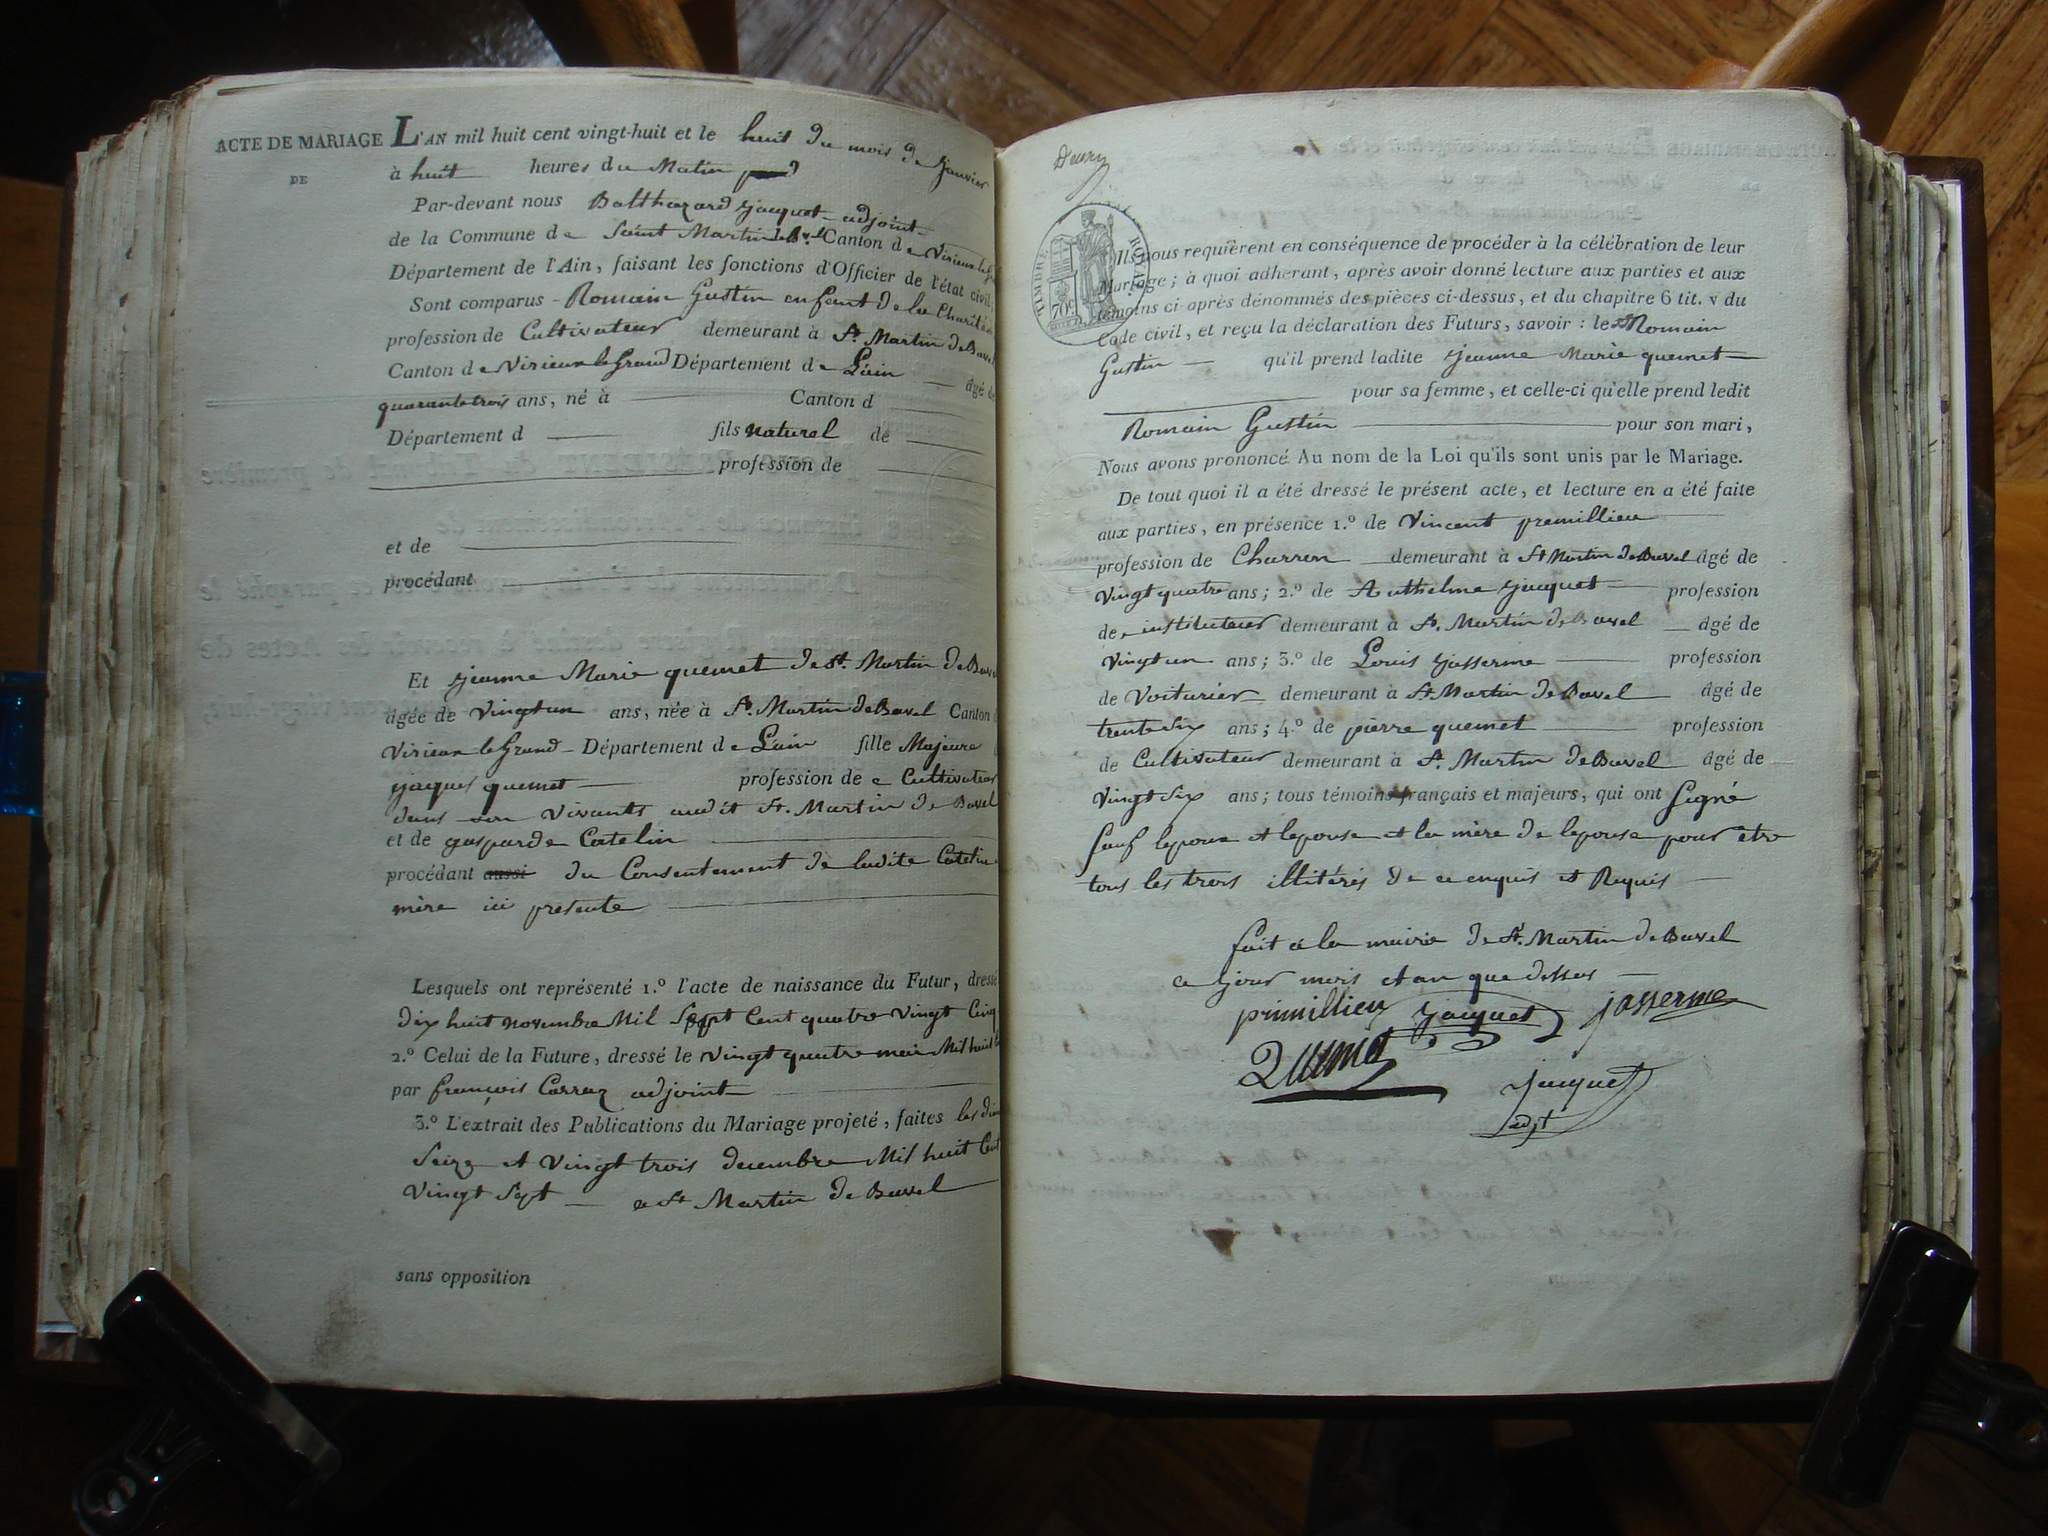 ACTE DE MARIAGE
DE
L'AN mil huit cent vingt-huit et le huit du mois de Janvier
à huit heures du Matin
Par-devant nous Balthazard Jacquet adjoint
de la Commune de Saint Martin de Bvel Canton de Virieu le G
Département de l'Ain, faisant les fonctions d'Officier de l'état civil.
Sont comparus Romain Gustin enfant de la Charité
profession de Cultivateur demeurant à St. Martin de Bavel
Canton de Virieux le Grand Département de L'ain âgé de
quarante trois ans, né à Canton d
Département d fils naturel de
profession de
et de
procédant
Et Jeanne Marie quemet de St. Martin de Bavel
âgée de Vingt un ans, née à St. Martin de Bavel Canton
Virieux le Grand Département de L'ain fille Majeure
Jaques quemet profession de Cultivateur
dans son Vivants audit St. Martin de Bavel
et de gasparde Catelin
procédant aussi du Consentement de ladite Catelin
mère ici présente
Lesquels ont représenté 1.º l'acte de naissance du Futur, dressé
dix huit novembre Mil Sept Cent quatre Vingt Cinq
2.º Celui de la Future, dressé le Vingt quatre mai Mil huit
par françois Carraz adjoint
3.º L'extrait des Publications du Mariage projeté, faites les dim
Seize et Vingt trois decembre Mil huit Cent
Vingt Sept a St Martin de Bavel
sans opposition
TIMBRE ROYAL
70c
Ils nous requièrent en conséquence de procéder à la célébration de leur
Mariage ; à quoi adhérant, après avoir donné lecture aux parties et aux
témoins ci-après dénommés des pièces ci-dessus, et du chapitre 6 tit. v du
Code civil, et reçu la déclaration des Futurs, savoir : le Sr Romain
Gustin qu'il prend ladite Jeanne Marie quemet
pour sa femme, et celle-ci qu'elle prend ledit
Romain Gustin pour son mari,
Nous avons prononcé Au nom de la Loi qu'ils sont unis par le Mariage.
De tout quoi il a été dressé le présent acte, et lecture en a été faite
aux parties, en présence 1.º de Vincent premillieu
profession de Charron demeurant à St Martin de Bavel âgé de
Vingt quatre ans ; 2.º de Anthelme Jacquet profession
de instituteur demeurant à St. Martin de Bavel âgé de
Vingt un ans ; 3.º de Louis Jasserme profession
de Voiturier demeurant à St Martin de Bavel âgé de
trente Six ans ; 4.º de pierre quemet profession
de Cultivateur demeurant à St. Martin de Bavel âgé de
Vingt Six ans ; tous témoins français et majeurs, qui ont Signé
Sauf lepoux et lepouse et la mère de lepouse pour etre
tous les trois illitérés de ce enquis et Requis
fait a la mairie de St. Martin de Bavel
ce Jour mois et an que dessus
primillieu Jacquet jasserme
Quemet
Jacquet
adjt